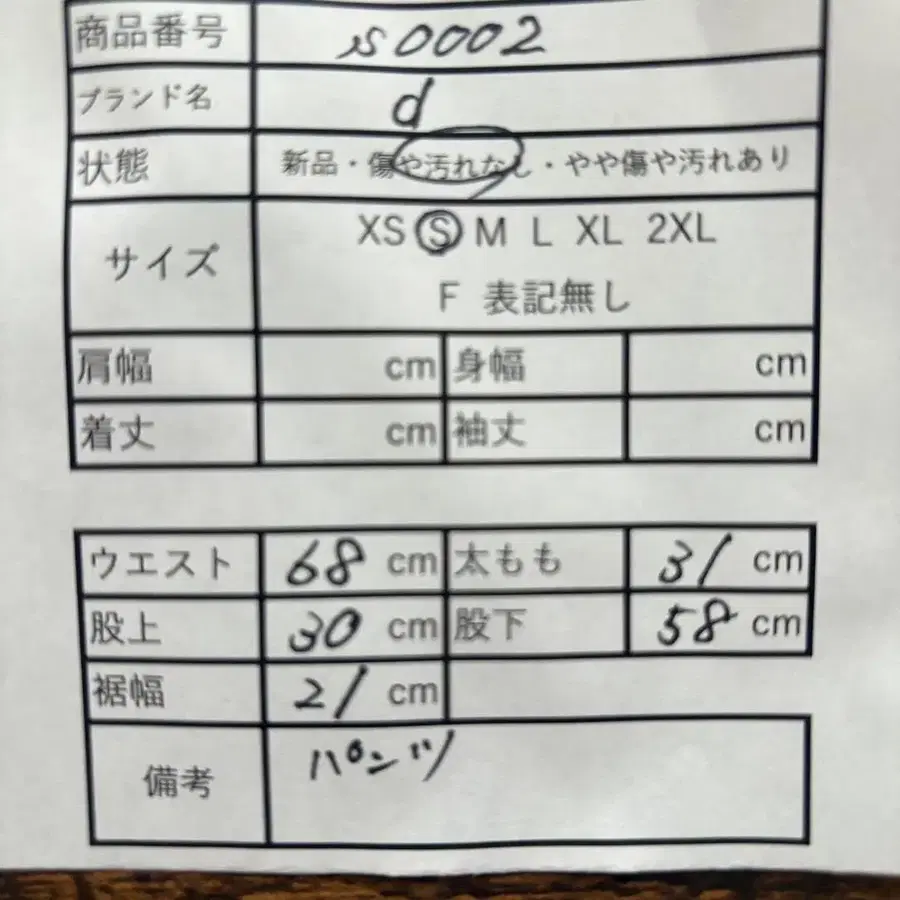 商品番号 s0002
ブランド名 d
状態 新品・傷や汚れなし・やや傷や汚れあり
サイズ XS S M L XL 2XL
F 表記無し
肩幅 cm 身幅 cm
着丈 cm 袖丈 cm
ウエスト 68 cm 太もも 31 cm
股上 30 cm 股下 58 cm
裾幅 21 cm
備考 パンツ